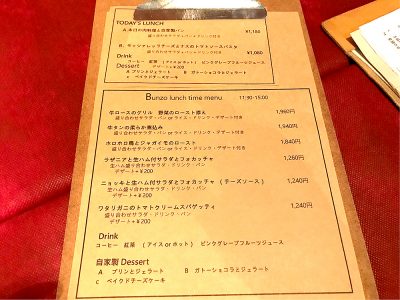 TODAY'S LUNCH
A 本日の肉料理と自家製パン ¥1,180
盛り合わせサラダ・パン・ドリンク付き
B. モッツァレラチーズとナスのトマトソースパスタ ¥1,080
盛り合わせサラダ・パン・ドリンク付き
Drink
コーヒー 紅茶 (アイス or ホット) ピンクグレープフルーツジュース
Dessert デザート+¥200
A プリンとジェラート B ガトーショコラとジェラート
c ベイクドチーズケーキ
Bunzo lunch time menu 11:30-15:00
牛ロースのグリル 野菜のロースト添え 1,960円
盛り合わせサラダ・パン or ライス・ドリンク・デザート付き
牛タンの柔らか煮込み 1,940円
盛り合わせサラダ・パン or ライス・ドリンク・デザート付き
ホロホロ鶏とジャガイモのロースト 1,840円
盛り合わせサラダ・パン or ライス・ドリンク・デザート付き
ラザニアと生ハム付サラダとフォカッチャ 1,260円
生ハム付サラダ・ドリンク・パン
デザート+¥200
ニョッキと生ハム付サラダとフォカッチャ (チーズソース) 1,240円
生ハム付サラダ・ドリンク・パン
デザート+¥200
ワタリガニのトマトクリームスパゲッティ 1,240円
盛り合わせサラダ・ドリンク・パン
デザート+¥200
Drink
コーヒー 紅茶 (アイス or ホット) ピンクグレープフルーツジュース
自家製 Dessert
A プリンとジェラート B ガトーショコラとジェラート
c ベイクドチーズケーキ